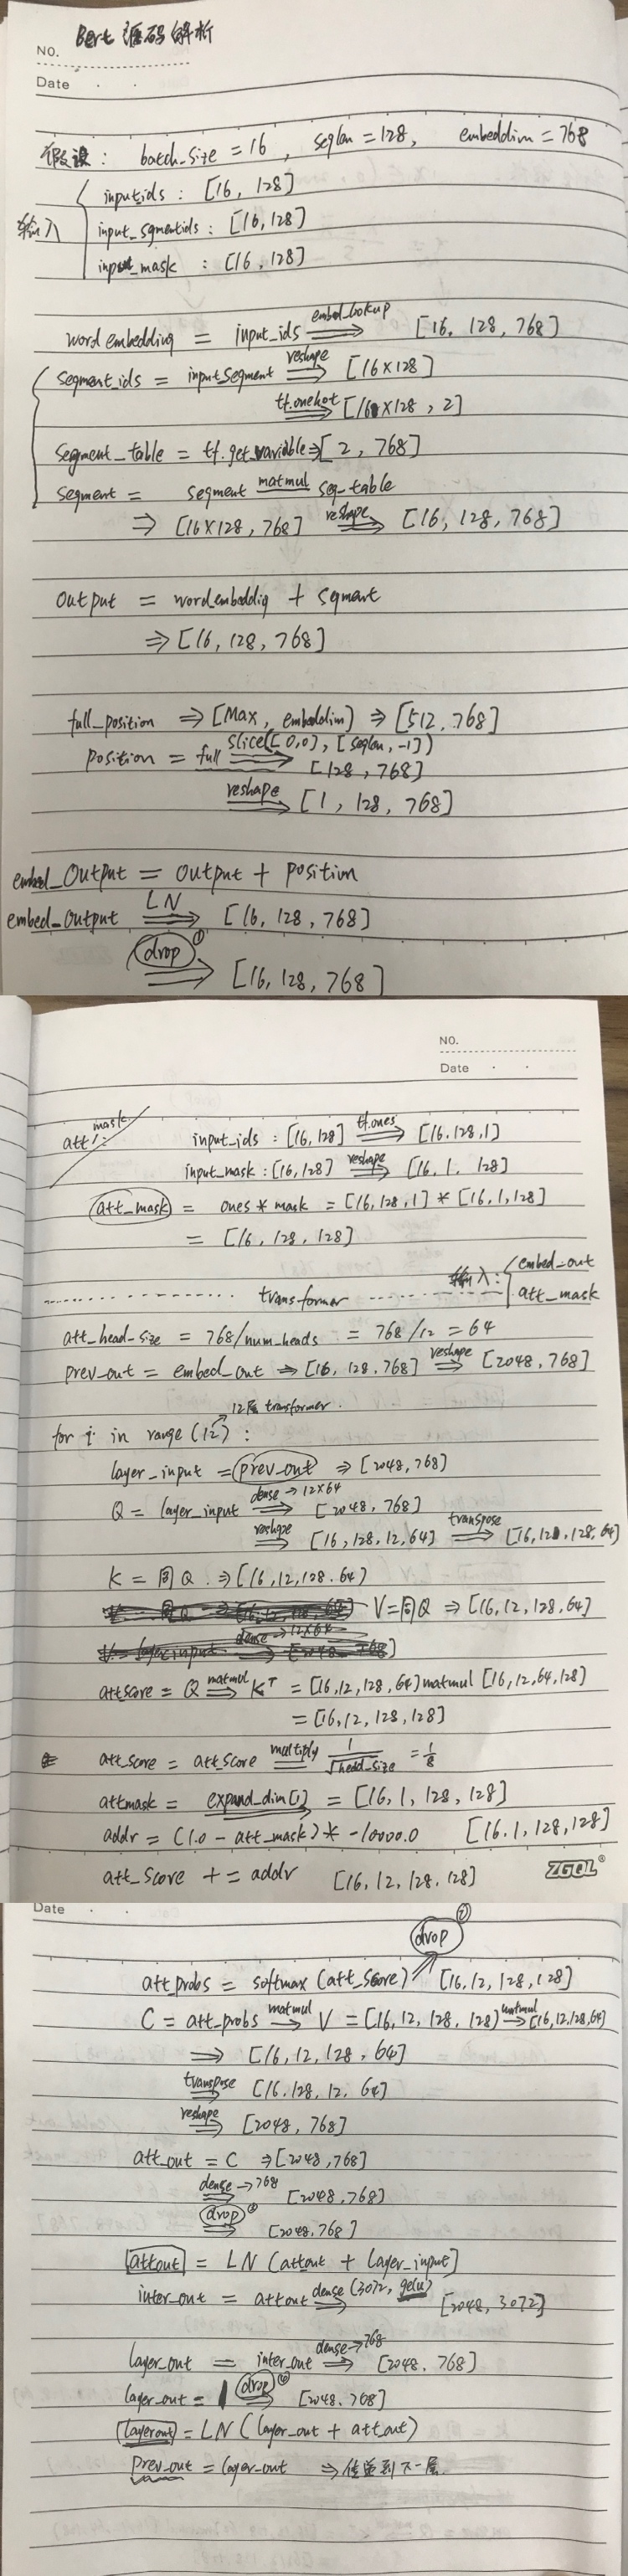 Bert 源码解析
NO.
Date
假设: batch_size = 16, seqlen = 128, embeddim = 768
inputids : [16, 128]
输入 input_sgmentids : [16, 128]
input_mask : [16, 128]
word embedding = input_ids embed_lookup ⟹ [16, 128, 768]
segment_ids = inputsegment reshape ⟹ [16×128]
tf.onehot ⟹ [16×128, 2]
segment_table = tf.get_variable ⇒ [2, 768]
segment = segment matmul seg_table
⇒ [16×128, 768] reshape ⟹ [16, 128, 768]
output = wordembeddig + sgment
⇒ [16, 128, 768]
full_position ⇒ [Max, embeddim] ⇒ [512, 768]
position = full slice([0,0], [seqlen, -1]) ⟹ [128, 768]
reshape ⟹ [1, 128, 768]
embed_output = output + position
embed_output LN ⟹ [16, 128, 768]
drop ① ⟹ [16, 128, 768]
NO.
Date
att mask: input_ids : [16, 128] tf.ones ⟹ [16, 128, 1]
input_mask : [16, 128] reshape ⟹ [16, 1, 128]
att_mask = ones * mask = [16, 128, 1] * [16, 1, 128]
= [16, 128, 128]
transformer 输入: embed_out
att_mask
att_head_size = 768/num_heads = 768/12 = 64
prev_out = embed_out ⇒ [16, 128, 768] reshape ⟹ [2048, 768]
12层 transformer.
for i in range (12) :
layer_input = prev_out ⇒ [2048, 768]
Q = layer_input dense → 12×64 ⟹ [2048, 768]
reshape ⟹ [16, 128, 12, 64] transpose ⟹ [16, 12, 128, 64]
K = 同Q. ⇒ [16, 12, 128, 64]
V = 同Q ⇒ [16, 12, 128, 64]
attscore = Q matmul ⟹ Kᵀ = [16, 12, 128, 64] matmul [16, 12, 64, 128]
= [16, 12, 128, 128]
att_score = att_score multiply 1/√head_size = 1/8
attmask = expand_dim[1] = [16, 1, 128, 128]
addr = (1.0 - att_mask) * -10000.0 [16, 1, 128, 128]
att_score += addr [16, 12, 128, 128]
ZGQL®
Date
drop ②
att_probs = softmax (att_score) [16, 12, 128, 128]
C = att_probs matmul → V = [16, 12, 128, 128] matmul → [16, 12, 128, 64]
⇒ [16, 12, 128, 64]
transpose ⟹ [16, 128, 12, 64]
reshape ⟹ [2048, 768]
att_out = C ⇒ [2048, 768]
dense → 768 ⟹ [2048, 768]
drop ⟹ [2048, 768]
attout = LN (attout + layer_input]
inter_out = attout dense (3072, gelu) ⟹ [2048, 3072]
layer_out = inter_out dense → 768 ⟹ [2048, 768]
layer_out = drop ⟹ [2048, 768]
layerout = LN (layer_out + attout)
prev_out = layer_out ⇒ 传递到下一层.